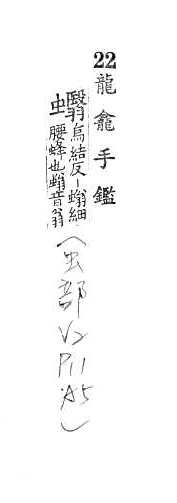 22 龍龕手鑑
烏結反-螉細
腰蜂也螉音翁
(虫部 V2 P11 A5)